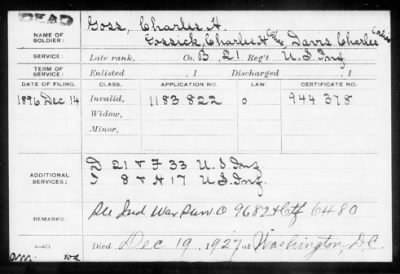 DEAD
Goss, Charles H.
NAME OF SOLDIER:
Gossick, Charles H. Davis Charles
SERVICE:
Late rank, Co. B, 21 Reg't U.S. Inf
TERM OF SERVICE:
Enlisted , 1 Discharged , 1
DATE OF FILING. CLASS. APPLICATION NO. LAW. CERTIFICATE NO.
1896 Dec 14 Invalid, 1183 822 0 944 378
Widow,
Minor,
ADDITIONAL SERVICES:
D 21 & F 33 U.S. Inf
I 8 & H 17 U.S. Inf.
REMARKS:
See Ind War Surv O 9682 & Ctf 6480
Died Dec 19, 1927 at Washington, D.C.